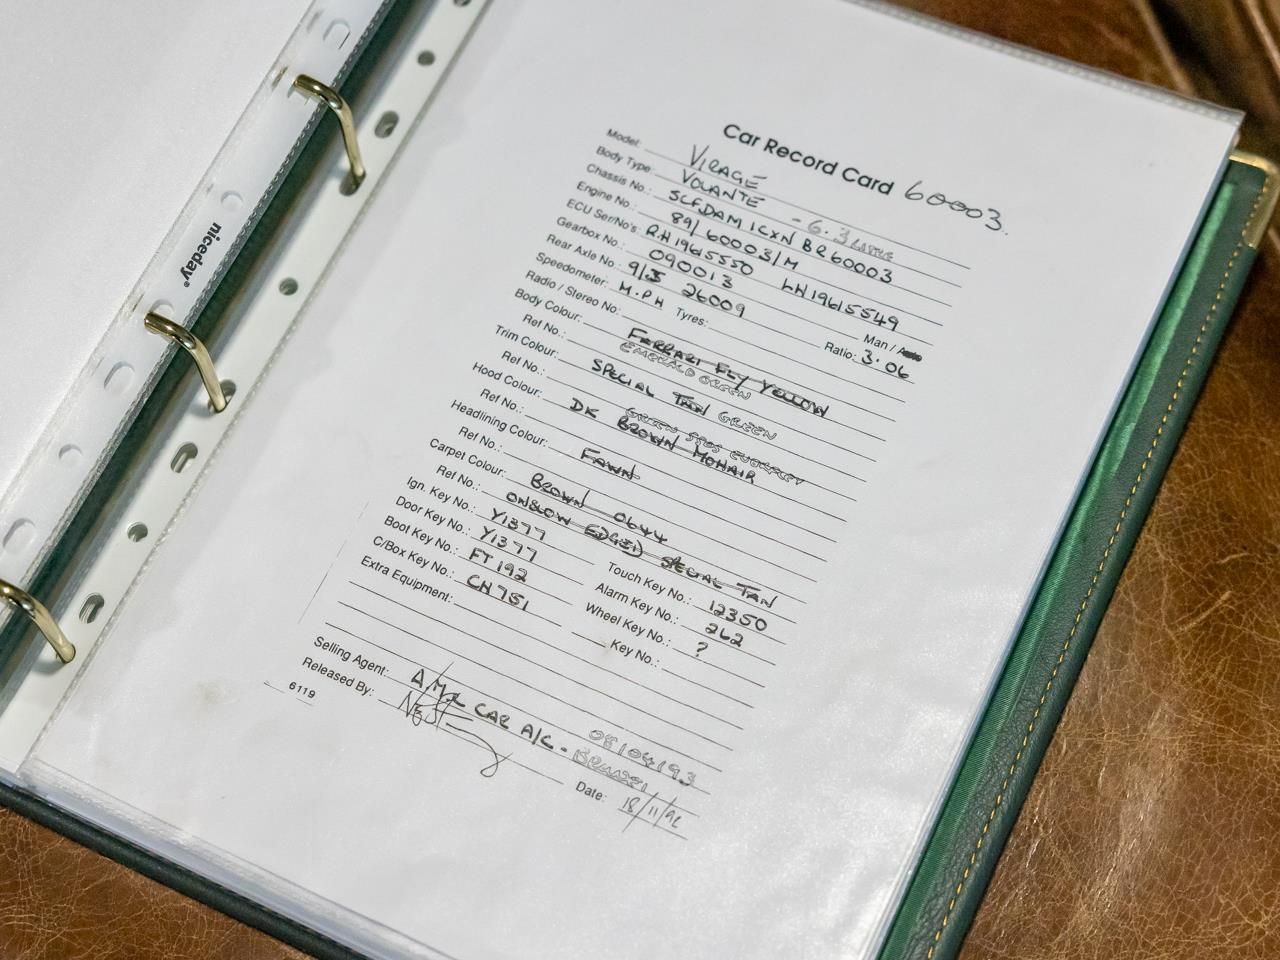 niceday®
Car Record Card 60003.
Model: VIRAGE
Body Type: VOLANTE - 6.3 LITRE
Chassis No.: SCFDAM1CXNBR60003
Engine No.: 89/60003/M
ECU Ser/No's: RH19615550 LH19615549
Gearbox No.: 090013 Man / Auto
Rear Axle No.: 9/3 26009 Ratio: 3.06
Speedometer: M.P.H Tyres:
Radio / Stereo No:
Body Colour: FERRARI FLY YELLOW
Ref No.: EMERALD GREEN
Trim Colour: SPECIAL TAN GREEN
Ref No.:
Hood Colour: DK BROWN MOHAIR GREEN
Ref No.:
Headlining Colour: FAWN
Ref No.:
Carpet Colour: BROWN 0644
Ref No.: ONSLOW EDGED SPECIAL TAN
Ign. Key No.: Y1377 Touch Key No.: 12350
Door Key No.: Y1377 Alarm Key No.: 262
Boot Key No.: FT192 Wheel Key No.: ?
C/Box Key No.: CH751 Key No.:
Extra Equipment:
Selling Agent: A/M CAR A/C - 08104193
Released By: Date: 18/11/92
6119